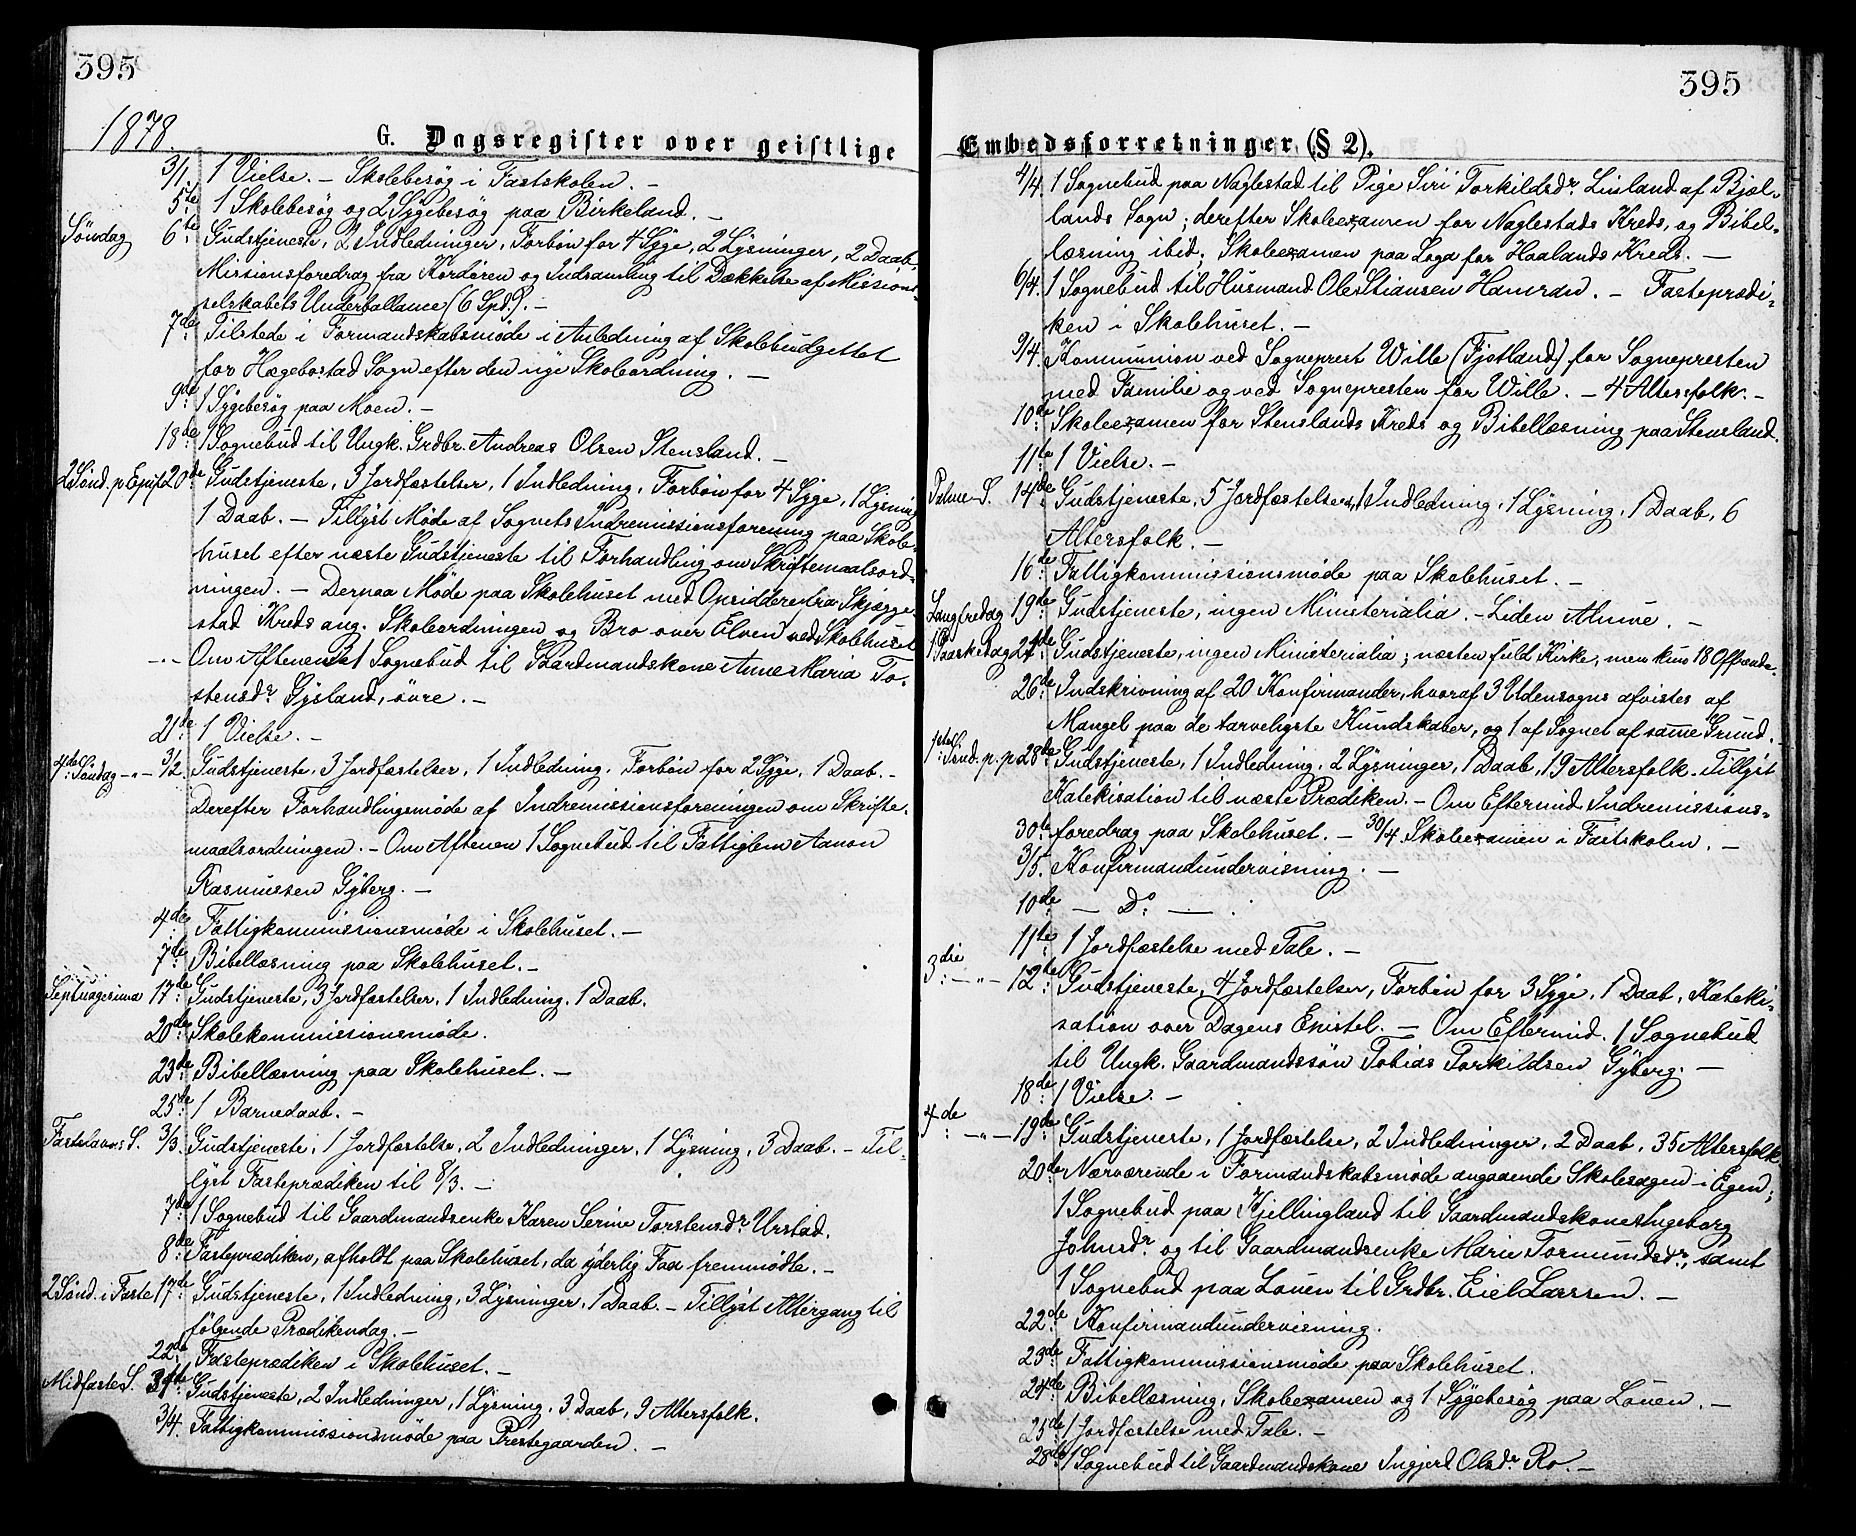 395
1878.
G. Dagsregister over geistlige
3/1. 1 Vielse. — Skolebesøg i Fastskolen. —
5te 1 Skolebesøg og 2 Sygebesøg paa Birkeland. —
Søndag 6te Gudstjeneste, 2 Indledninger, Forbøn for 4 Syge, 2 Lysninger, 2 Daab,
Missionsforedrag fra Kordøren og Indsamling til Dækkelse af Missions-
selskabets Underballance (6 Spd.). —
7de Tilstede i Formandskabsmøde i Anledning af Skolebudgettet
for Hægebostad Sogn efter den nye Skoleordning. —
9de 1 Sygebesøg paa Moen. —
18de 1 Sognebud til Ungk. Grdbr. Andreas Olsen Stensland. —
2 Sønd. p. Epif. 20de Gudstjeneste, 3 Jordfæstelser, 1 Indledning, Forbøn for 4 Syge, 1 Lysning
1 Daab. — Tillyst Møde af Sognets Indremissionsforening paa Skole-
huset efter næste Gudstjeneste til Forhandling om Skriftemaalsord-
ningen. — Derpaa Møde paa Skolehuset med Opsiddere fra Skjægge-
stad Kreds ang. Skoleordningen og Bro over Elven ved Skolehuset
—"— Om Aftenen 1 Sognebud til Gaardmandskone Anne Maria To-
stensdr. Gysland, øvre. —
21de 1 Vielse. —
4de Søndag —"— 3/2. Gudstjeneste, 3 Jordfæstelser, 1 Indledning, Forbøn for 2 Syge, 1 Daab. —
Derefter Forhandlingsmøde af Indremissionsforeningen om Skrifte-
maalsordningen. — Om Aftenen 1 Sognebud til Fattiglem Aanon
Rasmussen Gyberg. —
4de Fattigkommissionsmøde i Skolehuset. —
7de Bibellæsning paa Skolehuset. —
Septuagesima 17de Gudstjeneste, 3 Jordfæstelser, 1 Indledning, 1 Daab.
20de Skolekommissionsmøde.
23de Bibellæsning paa Skolehuset. —
25de 1 Barnedaab. —
Fastelavns S. 3/3. Gudstjeneste, 1 Jordfæstelse, 2 Indledninger, 1 Lysning, 3 Daab. — Til-
lyst Fasteprædiken til 8/3. —
7de 1 Sognebud til Gaardmandsenke Karen Serine Torstensdr. Urstad.
8de Fasteprædiken, afholdt paa Skolehuset, da yderlig Faa fremmødte. —
2 Sønd. i Faste 17de Gudstjeneste, 1 Indledning, 3 Lysninger, 1 Daab. — Tillyst Altergang til
følgende Prædikendag. —
22de Fasteprædiken i Skolehuset. —
Midfaste S. 31te Gudstjeneste, 2 Indledninger, 1 Lysning, 3 Daab, 9 Altersfolk.
3/4. Fattigkommissionsmøde paa Prestegaarden. —
395
Embedsforretninger (§ 2).
4/4. 1 Sognebud paa Naglestad til Pige Siri Torkildsdr. Linland af Bjel-
lands Sogn; derefter Skoleexamen for Naglestads Kreds, og Bibel-
læsning ibid. Skoleexamen paa Loga for Haalands Kreds. —
6/4. 1 Sognebud til Husmand Ole Stiansen Hamran. — Fasteprædi-
ken i Skolehuset. —
9/4. Kommunion ved Sogneprest Wille (Fjotland) for Sognepresten
med Familie og ved Sognepresten for Wille. — 4 Altersfolk. —
10de Skoleexamen for Stenslands Kreds og Bibellæsning paa Stensland.
11te 1 Vielse. —
Palme-S. 14de Gudstjeneste, 5 Jordfæstelser, 1 Indledning, 1 Lysning, 1 Daab, 6
Altersfolk. —
16de Fattigkommissionsmøde paa Skolehuset. —
Langfredag 19de Gudstjeneste, ingen Ministerialia. — Liden Almue. —
1 Paaskedag 21de Gudstjeneste, ingen Ministerialia; næsten fuld Kirke, men kun 18 Offrende.
26de Indskrivning af 20 Konfirmander, hvoraf 3 Udensogns afvistes af
Mangel paa de tarveligste Kundskaber, og 1 af Sognet af samme Grund. —
1ste Sønd. p. p. 28de Gudstjeneste, 1 Indledning, 2 Lysninger, 1 Daab, 19 Altersfolk. Tillyst
Katekisation til næste Prædiken. — Om Eftermid. Indremissions-
30te foredrag paa Skolehuset. — 30/4. Skoleexamen i Fastskolen. —
3/5. Konfirmandundervisning. —
10de — Do —
11te 1 Jordfæstelse med Tale. —
3die —"— 12te Gudstjeneste, 4 Jordfæstelser, Forbøn for 3 Syge, 1 Daab, Kateki-
sation over Dagens Epistel. — Om Eftermid. 1 Sognebud
til Ungk. Gaardmandssøn Tobias Torkildsen Gyberg. —
18de 1 Vielse. —
4de —"— 19de Gudstjeneste, 1 Jordfæstelse, 2 Indledninger, 2 Daab, 35 Altersfolk.
20de Nærværende i Formandskabsmøde angaaende Skolesagen i Egen;
1 Sognebud paa Kjellingland til Gaardmandskone Ingeborg
Johnsdr. og til Gaardmandsenke Marie Tormundsdr., samt
1 Sognebud paa Louen til Grdbr. Eiel Larssen. —
22de Konfirmandundervisning.
23de Fattigkommissionsmøde paa Skolehuset.
24de Bibellæsning, Skoleexamen og 1 Sygebesøg paa Louen. —
25de 1 Jordfæstelse med Tale. —
28de 1 Sognebud til Gaardmandskone Ingjerd Olsdr. Ro. —